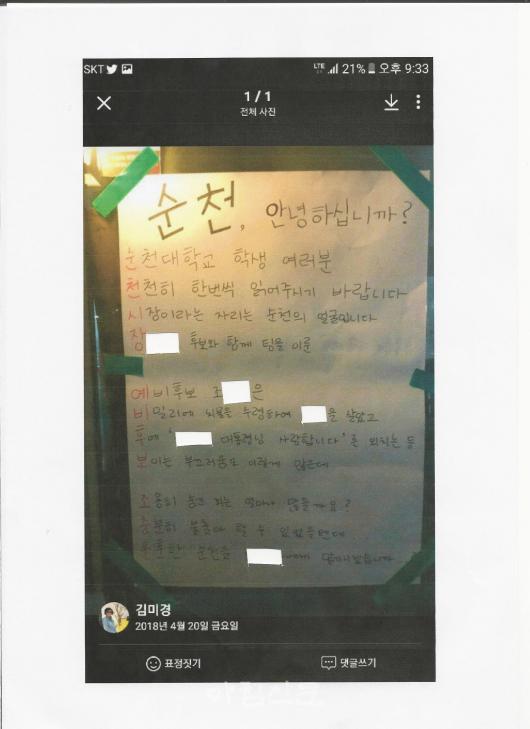 SKT LTE 21% 오후 9:33
1 / 1
전체 사진
순천, 안녕하십니까?
순천대학교 학생 여러분
천천히 한번씩 읽어주시기 바랍니다
시장이라는 자리는 순천의 얼굴입니다
장 후보와 함께 팀을 이룬
예비후보 조 은
비밀리에 뇌물을 수령하여 을 살았고
후에 ' 대통령님 사랑합니다'를 외치는 등
보이는 부끄러움도 이렇게 많은데
조용히 숨겨 얼마나 많을까요?
충분히 수 있었을텐데
순천을
김미경
2018년 4월 20일 금요일
표정짓기
댓글쓰기